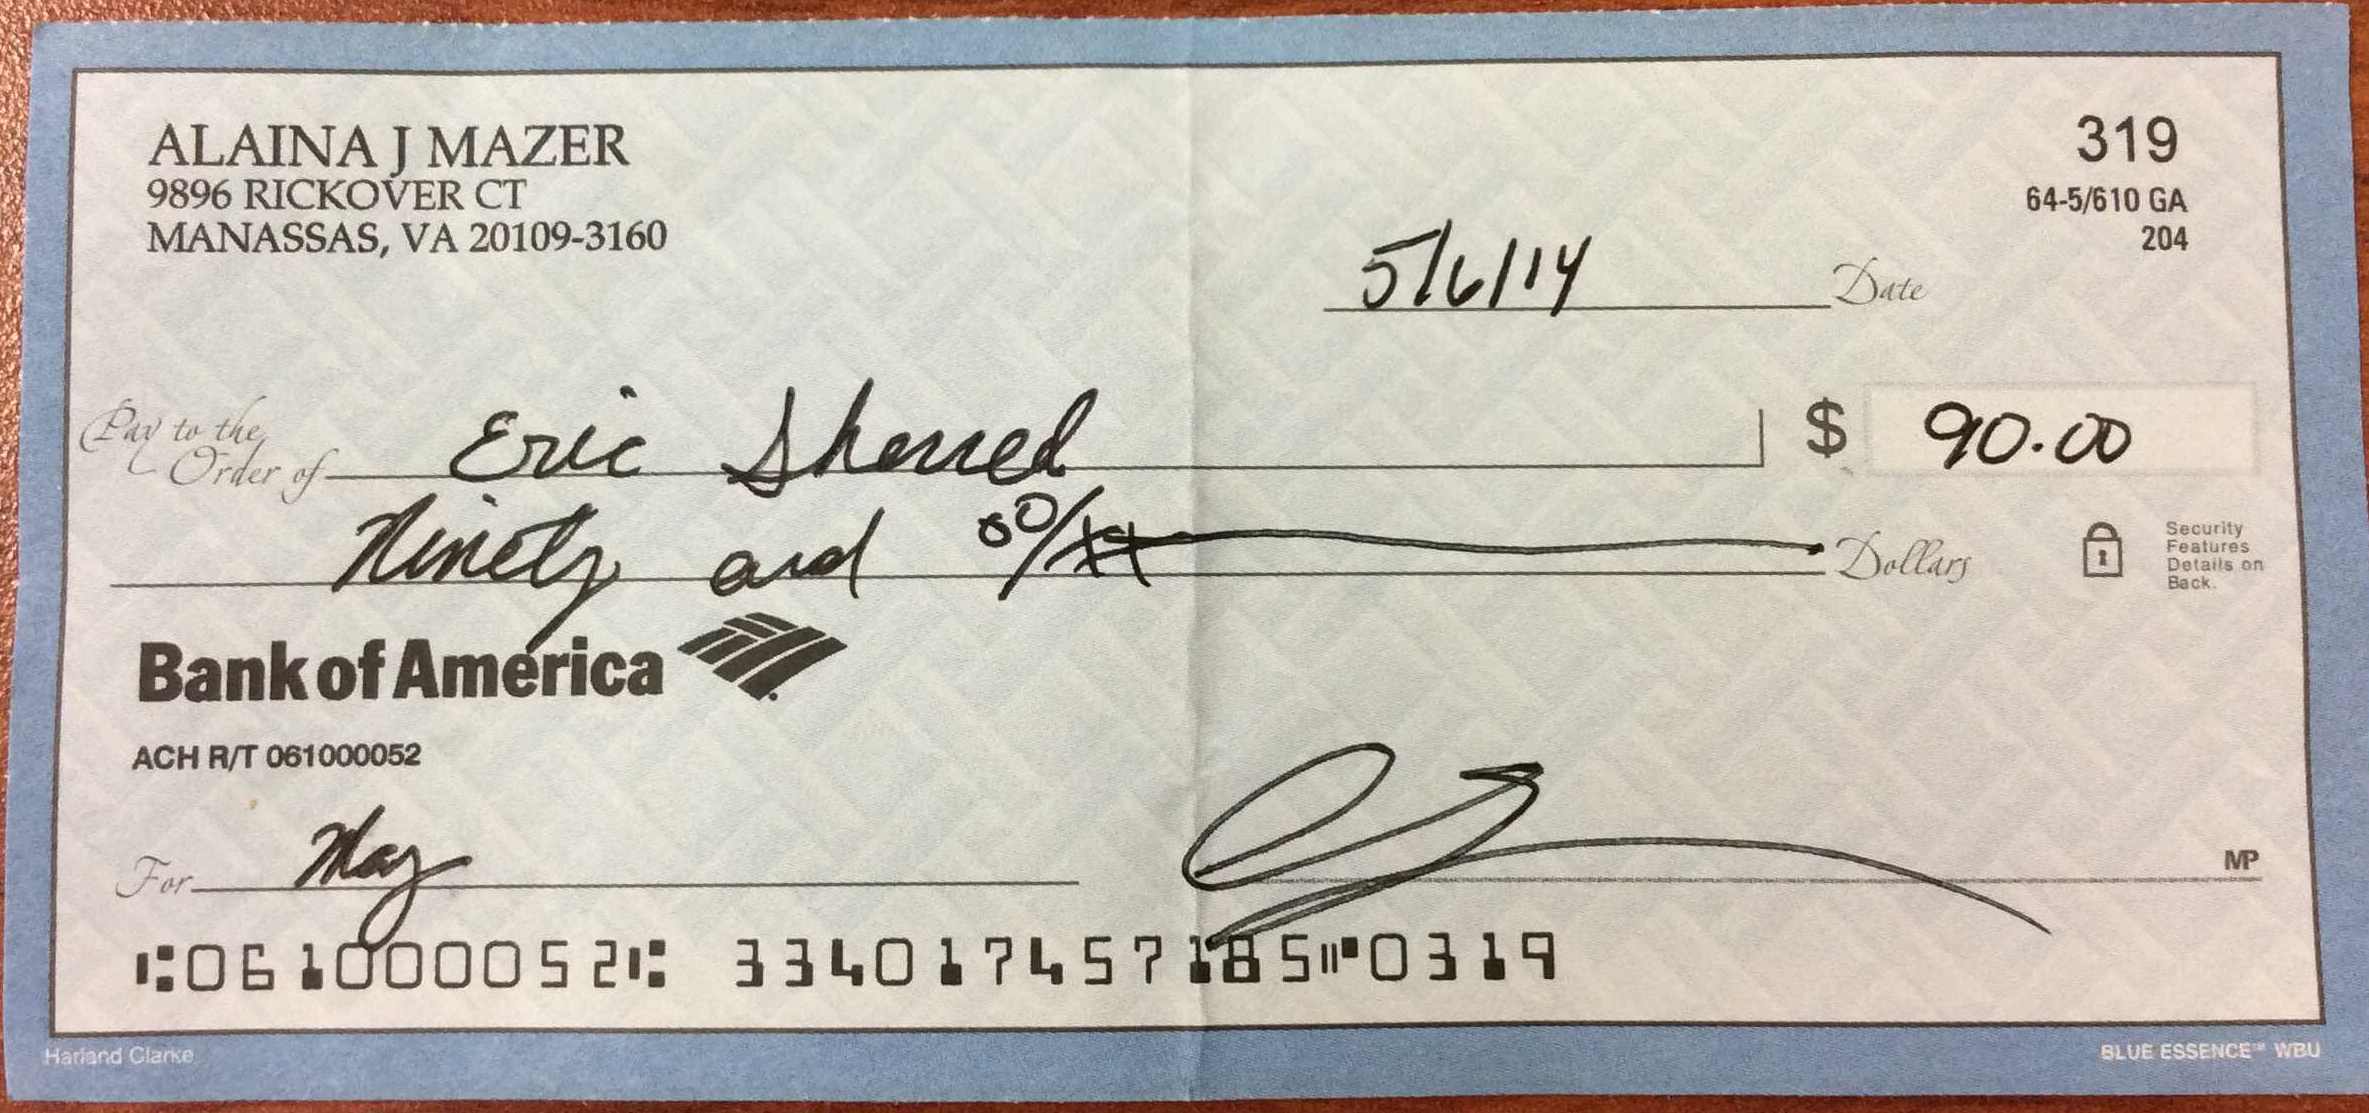 ALAINA J MAZER
9896 RICKOVER CT
MANASSAS, VA 20109-3160
319
64-5/610 GA
204
5/6/14 Date
Pay to the
Order of Eric Sherred $ 90.00
Ninety and 00/xx Dollars
Security
Features
Details on
Back.
Bank of America
ACH R/T 061000052
For May
MP
⑆061000052⑆ 334017457185⑈0319
Harland Clarke
BLUE ESSENCE™ WBU